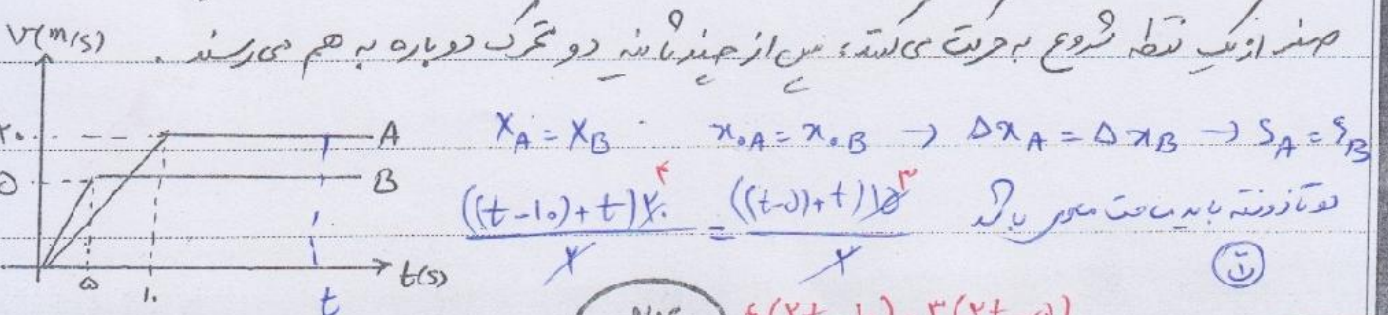 صفر از یک نقطه شروع به حرکت می‌کنند، پس از چند ثانیه دو متحرک دوباره به هم می‌رسند .
V(m/s)
A
B
۵
۱۰
t
t(s)
X_A = X_B x_{0A} = x_{0B} → Δx_A = Δx_B → S_A = S_B
((t-10)+t)۲۰ / ۲ = ((t-5)+t)15 / ۲ ۴ ۳
دو تا ذوزنقه باید مساحت مساوی باشد
۴(۲t-10) = ۳(۲t-5)